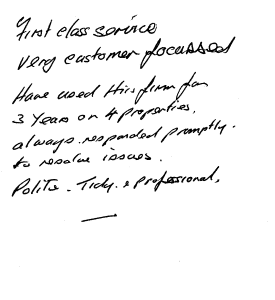 First class service
very customer focussed
Have used this firm for
3 Years on 4 properties.
always responded promptly.
to resolve issues.
Polite. Tidy. & professional.